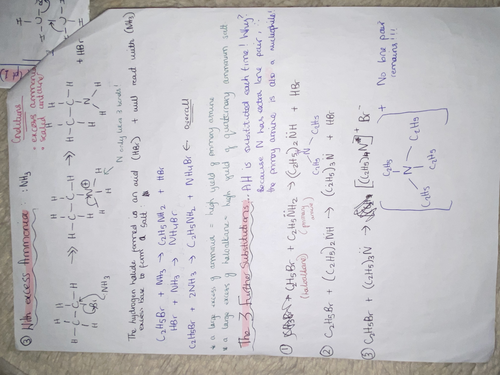 ③ With excess Ammonia : NH3
Conditions
• excess ammonia
• sealed container
H H
H—C—C—H
H Br
:NH3
→
H H
H—C—C—H
H N⊕—H
H H
→
H H
H—C—C—H
H N—H
H
+ HBr
N only likes 3 bonds!
The hydrogen halide formed is an acid (HBr) + will react with (NH3)
excess base to form a salt
C2H5Br + NH3 → C2H5NH2 + HBr
HBr + NH3 → NH4Br
C2H5Br + 2NH3 → C2H5NH2 + NH4Br ← overall
• a large excess of ammonia = high yield of primary amine
• a large excess of haloalkane = high yield of quaternary ammonium salt
The 3 Further Substitutions: A H is substituted each time! Why?
Because N has extra lone pair, ∴
the primary amine is also a nucleophile!
① C2H5Br + C2H5N̈H2 → (C2H5)2N̈H + HBr
(haloalkane) (primary amine)
C2H5 N C2H5
② C2H5Br + (C2H5)2NH → (C2H5)3N + HBr
③ C2H5Br + (C2H5)3N̈ → [(C2H5)4N]+ Br−
C2H5
C2H5—N—C2H5
C2H5
+
No lone pair
remains!!!